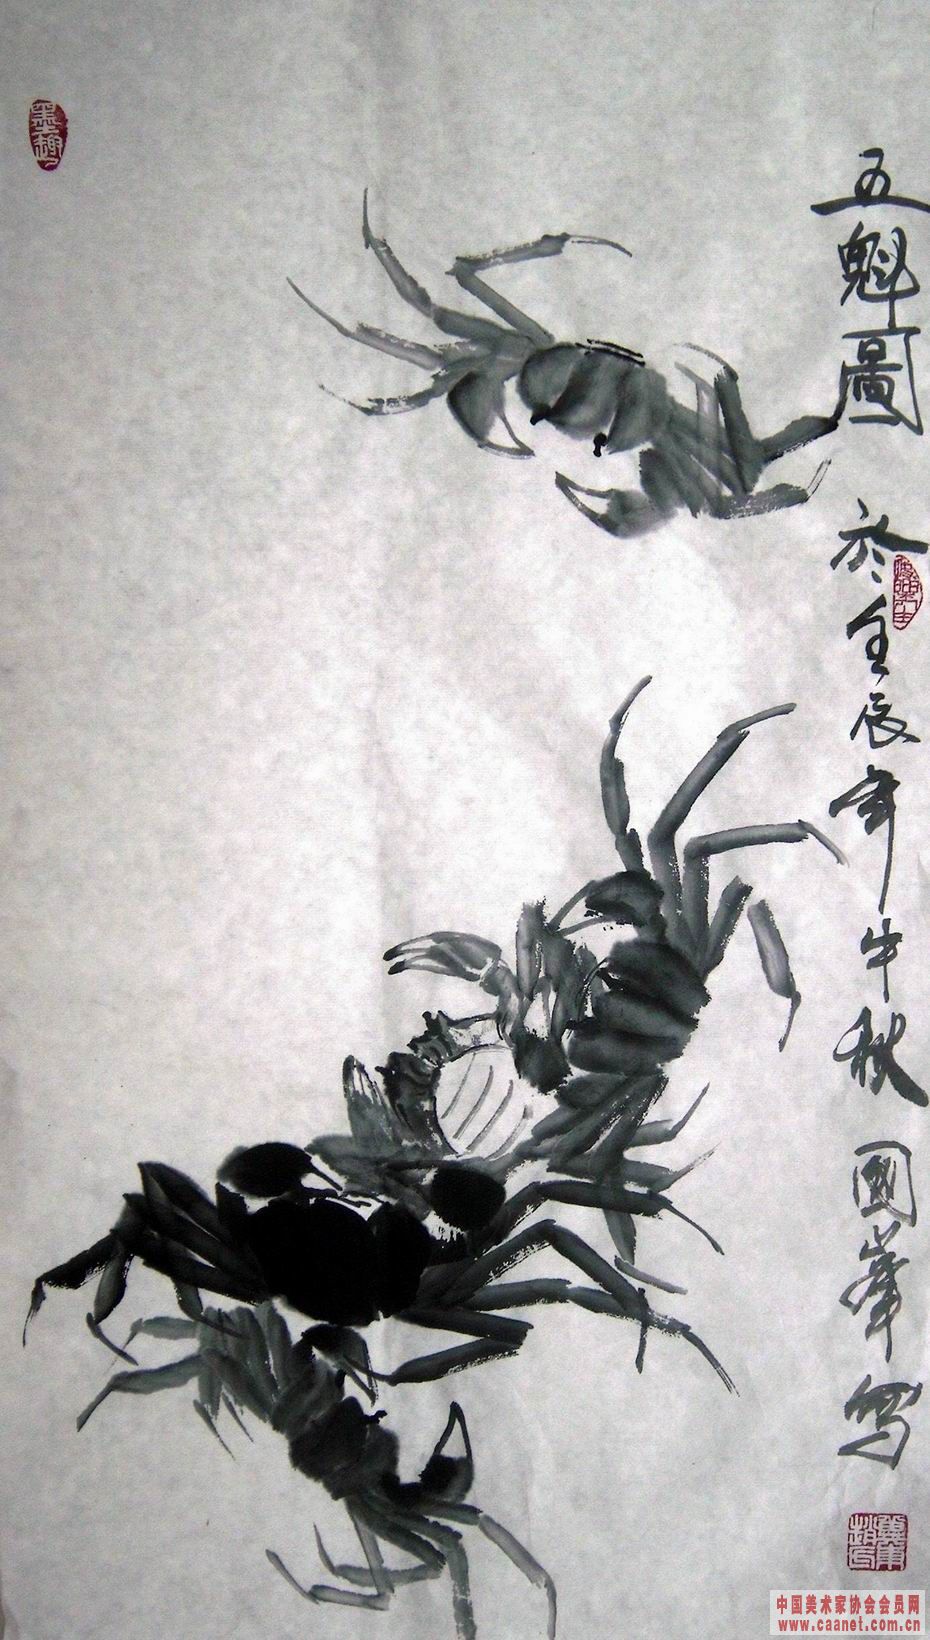 五魁圖 於壬辰年中秋 國峯寫
墨趣
中国美术家协会会员网
www.caanet.com.cn